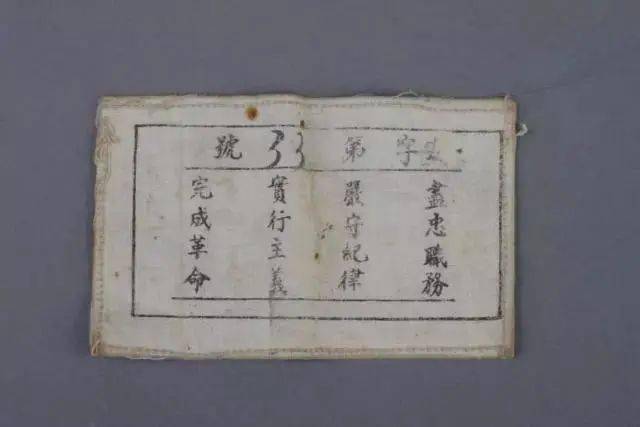 字第33號
盡忠職務
嚴守紀律
實行主義
完成革命